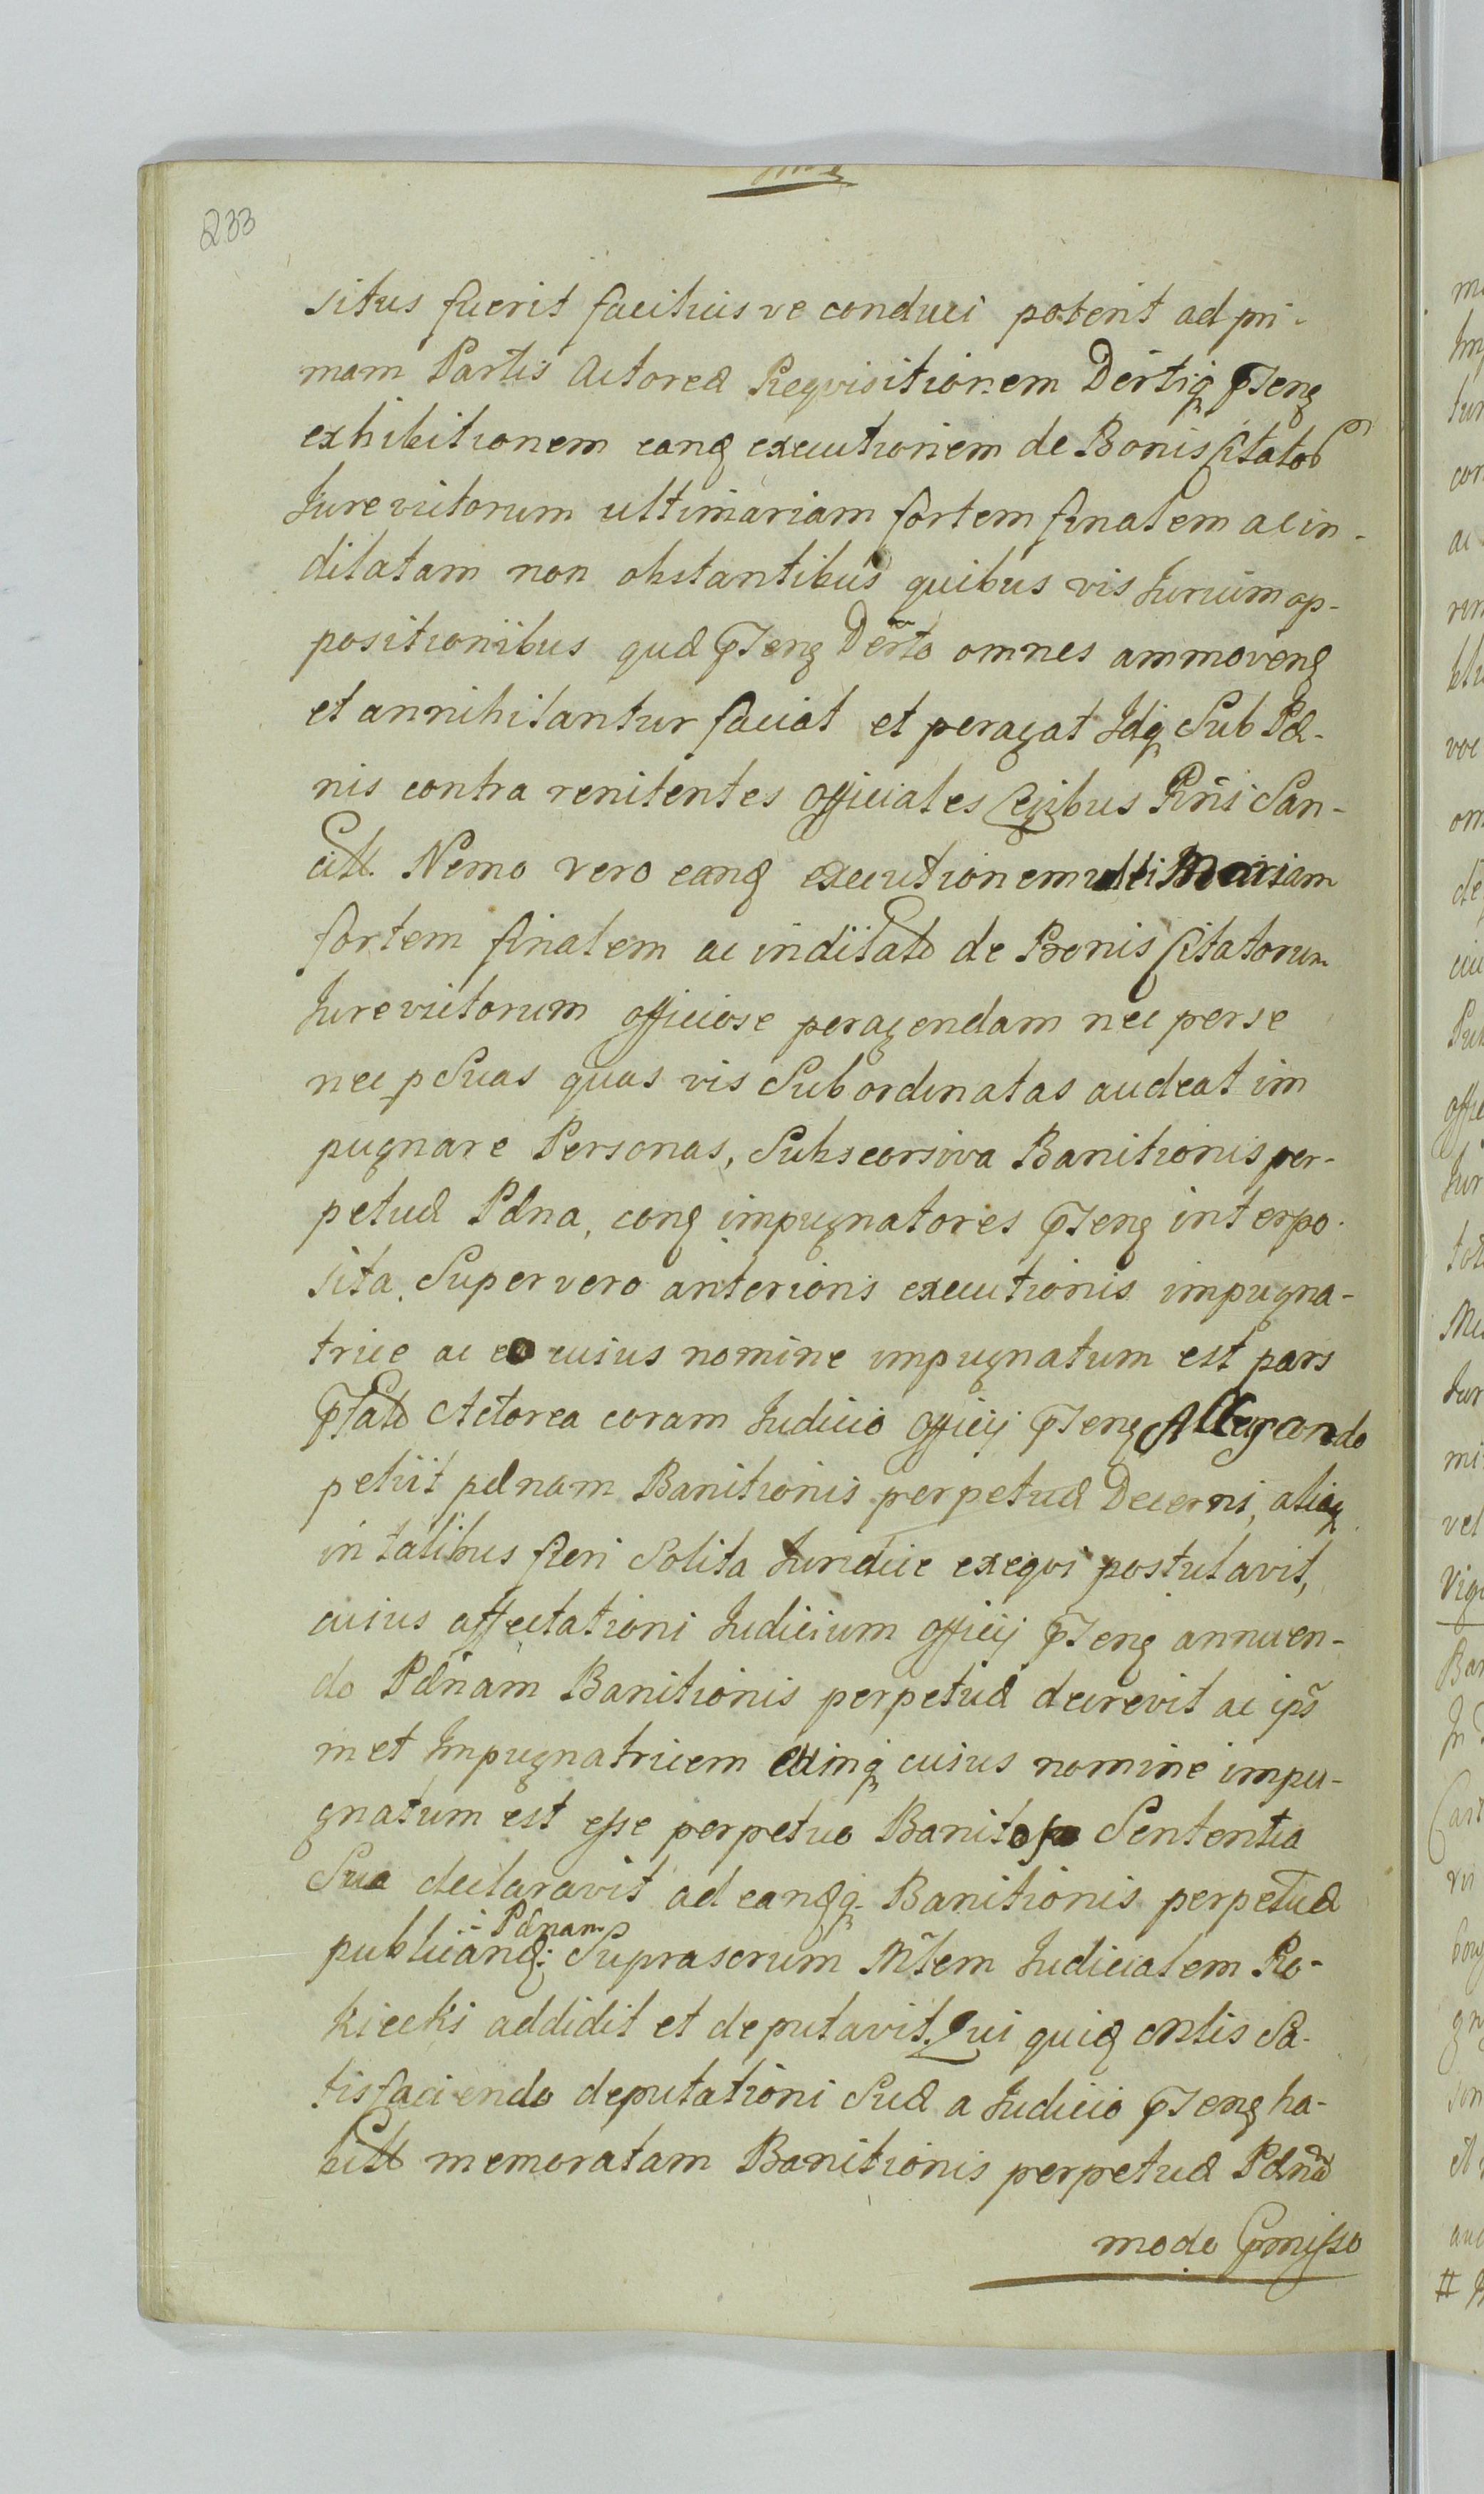 233
situs fuerit facitius ve conduci poterit ad pri-
mam Partis Actoreæ Reqvisitionem Dertiq pnteng
exhibitionem eanq executionem de Bonis Citator
Jurevictorum ultimariam fortem finalem ac in-
dilatam non obstantibus quibus vis Jurium op-
positionibus quæ pnteng Derto omnes ammoveng
et annihilantur faciat et peragat Jdq Sub Pæ-
nis contra renitentes officiales Legibus Rni San-
citt. Nemo vero eanq executionem ultimariam
fortem finalem ac indilato de Bonis Citatorum
Jurevictorum officiose peragendam nec per se
nec p Suas quas vis Subordinatas audeat im
pugnare Personas, Subscorsiva Banitionis per-
petuæ Pæna, conq impugnatores pnteng interpo-
sita. Super vero anterioris executionis impugna-
trice ac eo cuius nomine impugnatum est pars
pfato Actorea coram Judicio officij pnteng Allegando
petiit pænam Banitionis perpetuæ Decerni, aliaq
in talibus fieri Solita Juridice exeqvi postulavit,
cuius affectationi Judicium officij pnteng annuen-
do Pænam Banitionis perpetuæ decrevit ac ips
met Impugnatricem eumq cuius nomine impu-
gnatum est esse perpetuo Banitos Sententia
Sua declaravit ad eandq Banitionis perpetuæ
÷ Pænam
publicanq: Suprascrum Mtem Judicialem Ro-
kiecki addidit et deputavit. Qui quiq cntis Sa-
tisfaciendo deputationi Suæ a Judicio pnteng ha-
bitt memoratam Banitionis perpetuæ Pænã
modo pmisso